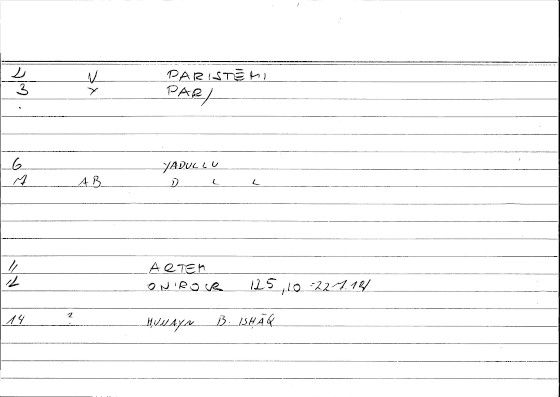 2 V PARISTĒMI
3 Y PAR/
6 YADULLU
7 AB D L L
11 ARTEM
12 ONIROCR 125,10 = 221.12
14 ? HUNAYN B. ISHĀQ